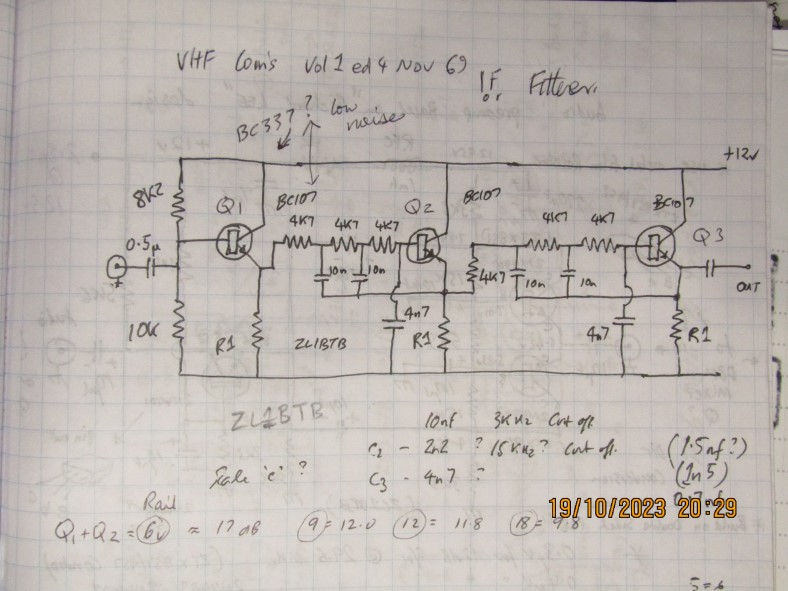 VHF Com's Vol 1 ed 4 Nov 69
I.F. or Filter.
BC337 ? low noise
+12v
8K2
Q1
BC107
4K7 4K7 4K7
Q2
BC107
4K7 4K7
BC107
Q3
0.5µ
10n 10n
4K7
10n 10n
OUT
10K
R1
ZL1BTB
4n7
R1
4n7
R1
ZL1BTB
10nf 3KHz Cut off
C2 - 2n2 ? 15KHz? Cut off. (1.5nf?)
Scale 'c' ? C3 - 4n7 ? (1n5)
19/10/2023 20:29
Rail
Q1+Q2 = 6v ≈ 17 dB 9 = 12.0 12 = 11.8 18 = 9.8